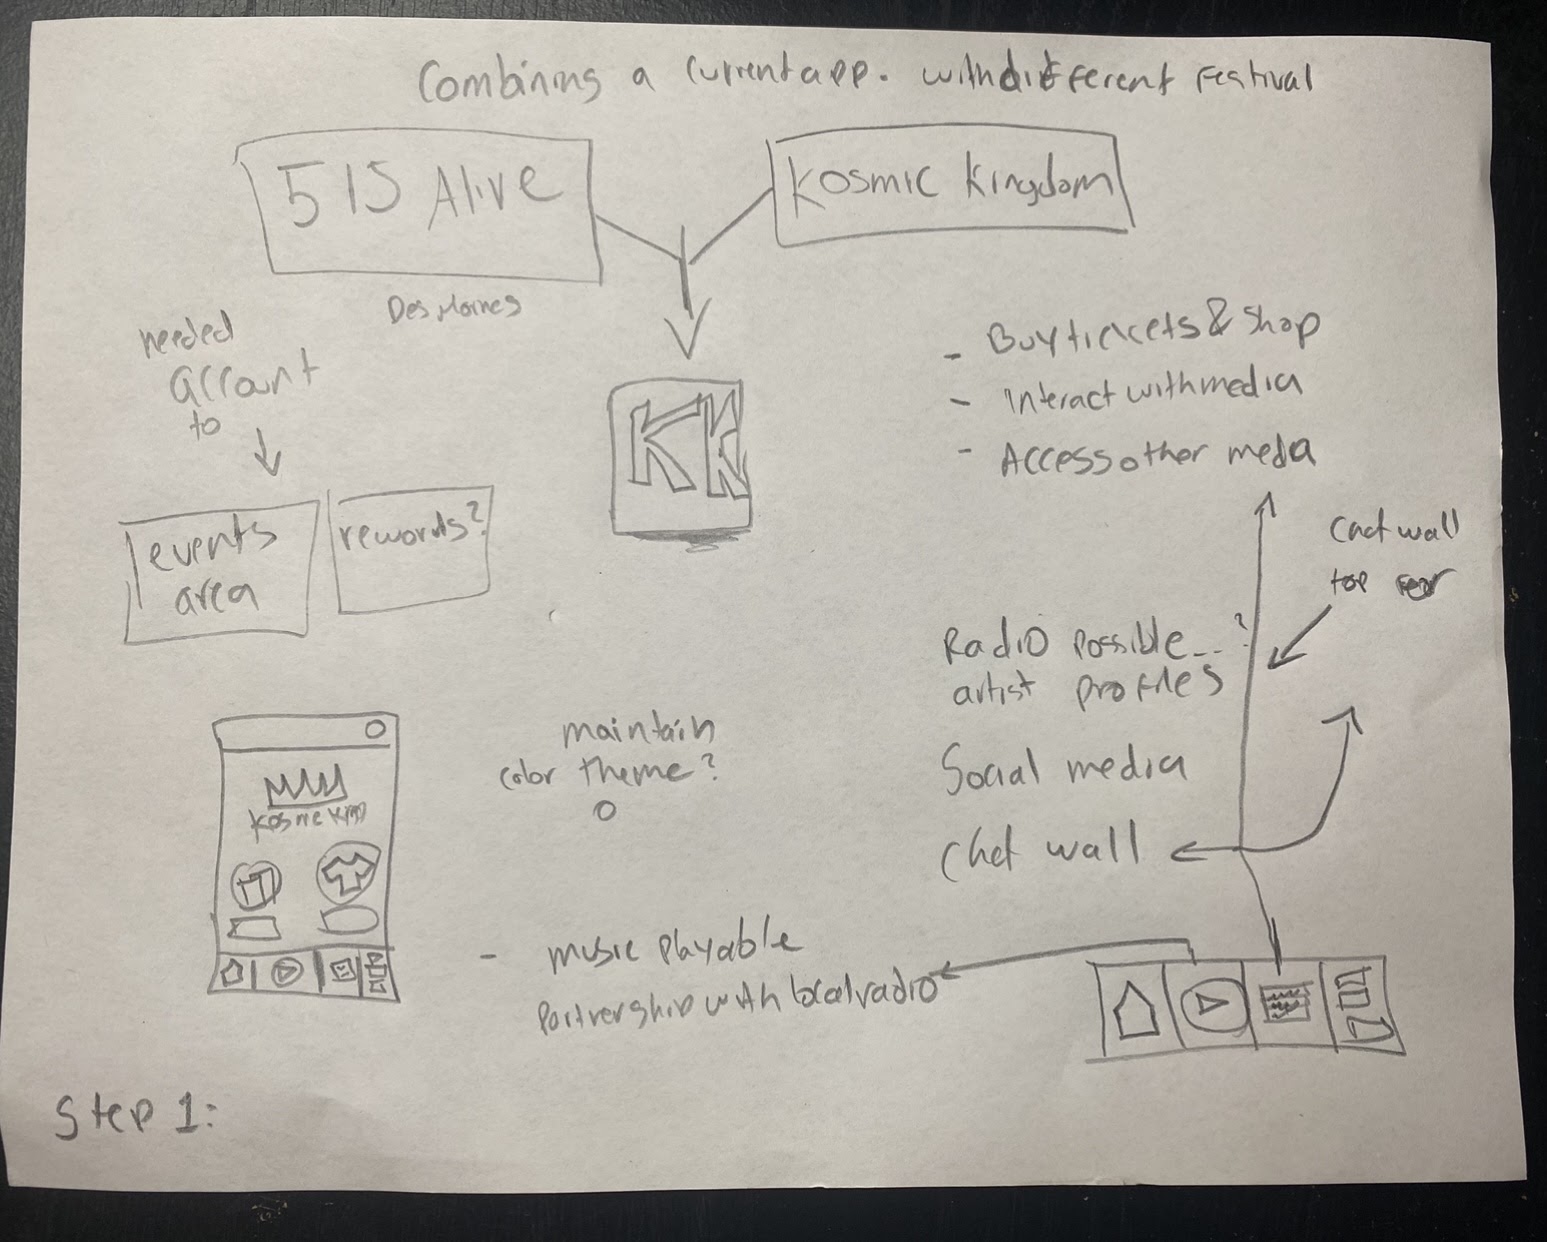 Combining a current app. with different Festival
515 Alive
Kosmic Kingdom
Des Moines
needed
account
to
events
area
rewords?
KK
- Buy tickets & shop
- Interact with media
- Access other meda
Chat wall
top
Radio possible...?
artist profiles
Social media
Chat wall
maintain
color theme?
- music playable
Partnership with local radio
Step 1: